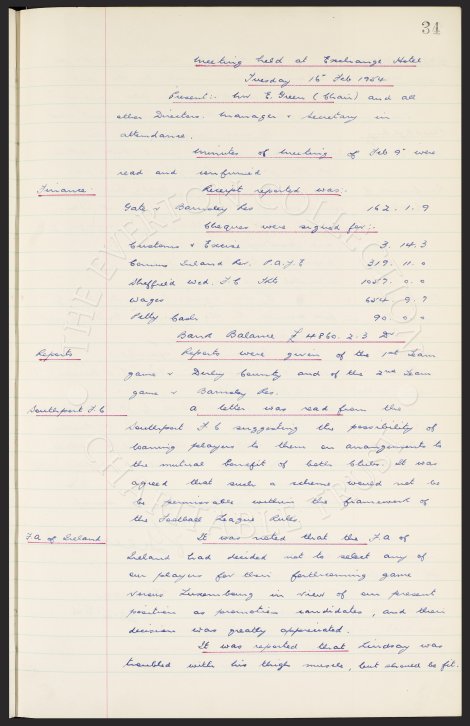 34
Meeting held at Exchange Hotel
Tuesday 16th Feb 1954
Present:- Mr E. Green (Chair) and all
other Directors. Manager & Secretary in
attendance.
Minutes of Meeting of Feb 9th were
read and confirmed
Finance: Receipt reported was:
Gate v Barnsley Res 162. 1. 9
Cheques were signed for:-
Customs & Excise 3. 14. 3
Comms Inland Rev. P.A.Y.E 319. 11. 0
Sheffield Wed. F.C Tkts 1057. 0. 0
Wages 654. 9. 7
Petty Cash 90. 0. 0
Bank Balance £4860. 2. 3 Dr
Reports Reports were given of the 1st Team
game v Derby County and of the 2nd Team
game v Barnsley Res.
Southport F.C A letter was read from the
Southport F.C suggesting the possibility of
loaning players to them on arrangements to
the mutual benefit of both Clubs. It was
agreed that such a scheme would not be
be permissable within the framework of
the Football League Rules
F.A. of Ireland It was noted that the F.A of
Ireland had decided not to select any of
our players for their forthcoming game
versus Luxembourg in view of our present
position as promotion candidates, and their
decision was greatly appreciated.
It was reported that Lindsay was
troubled with his thigh muscle, but should be fit.
THE EVERTON COLLECTION
CHARITABLE TRUST